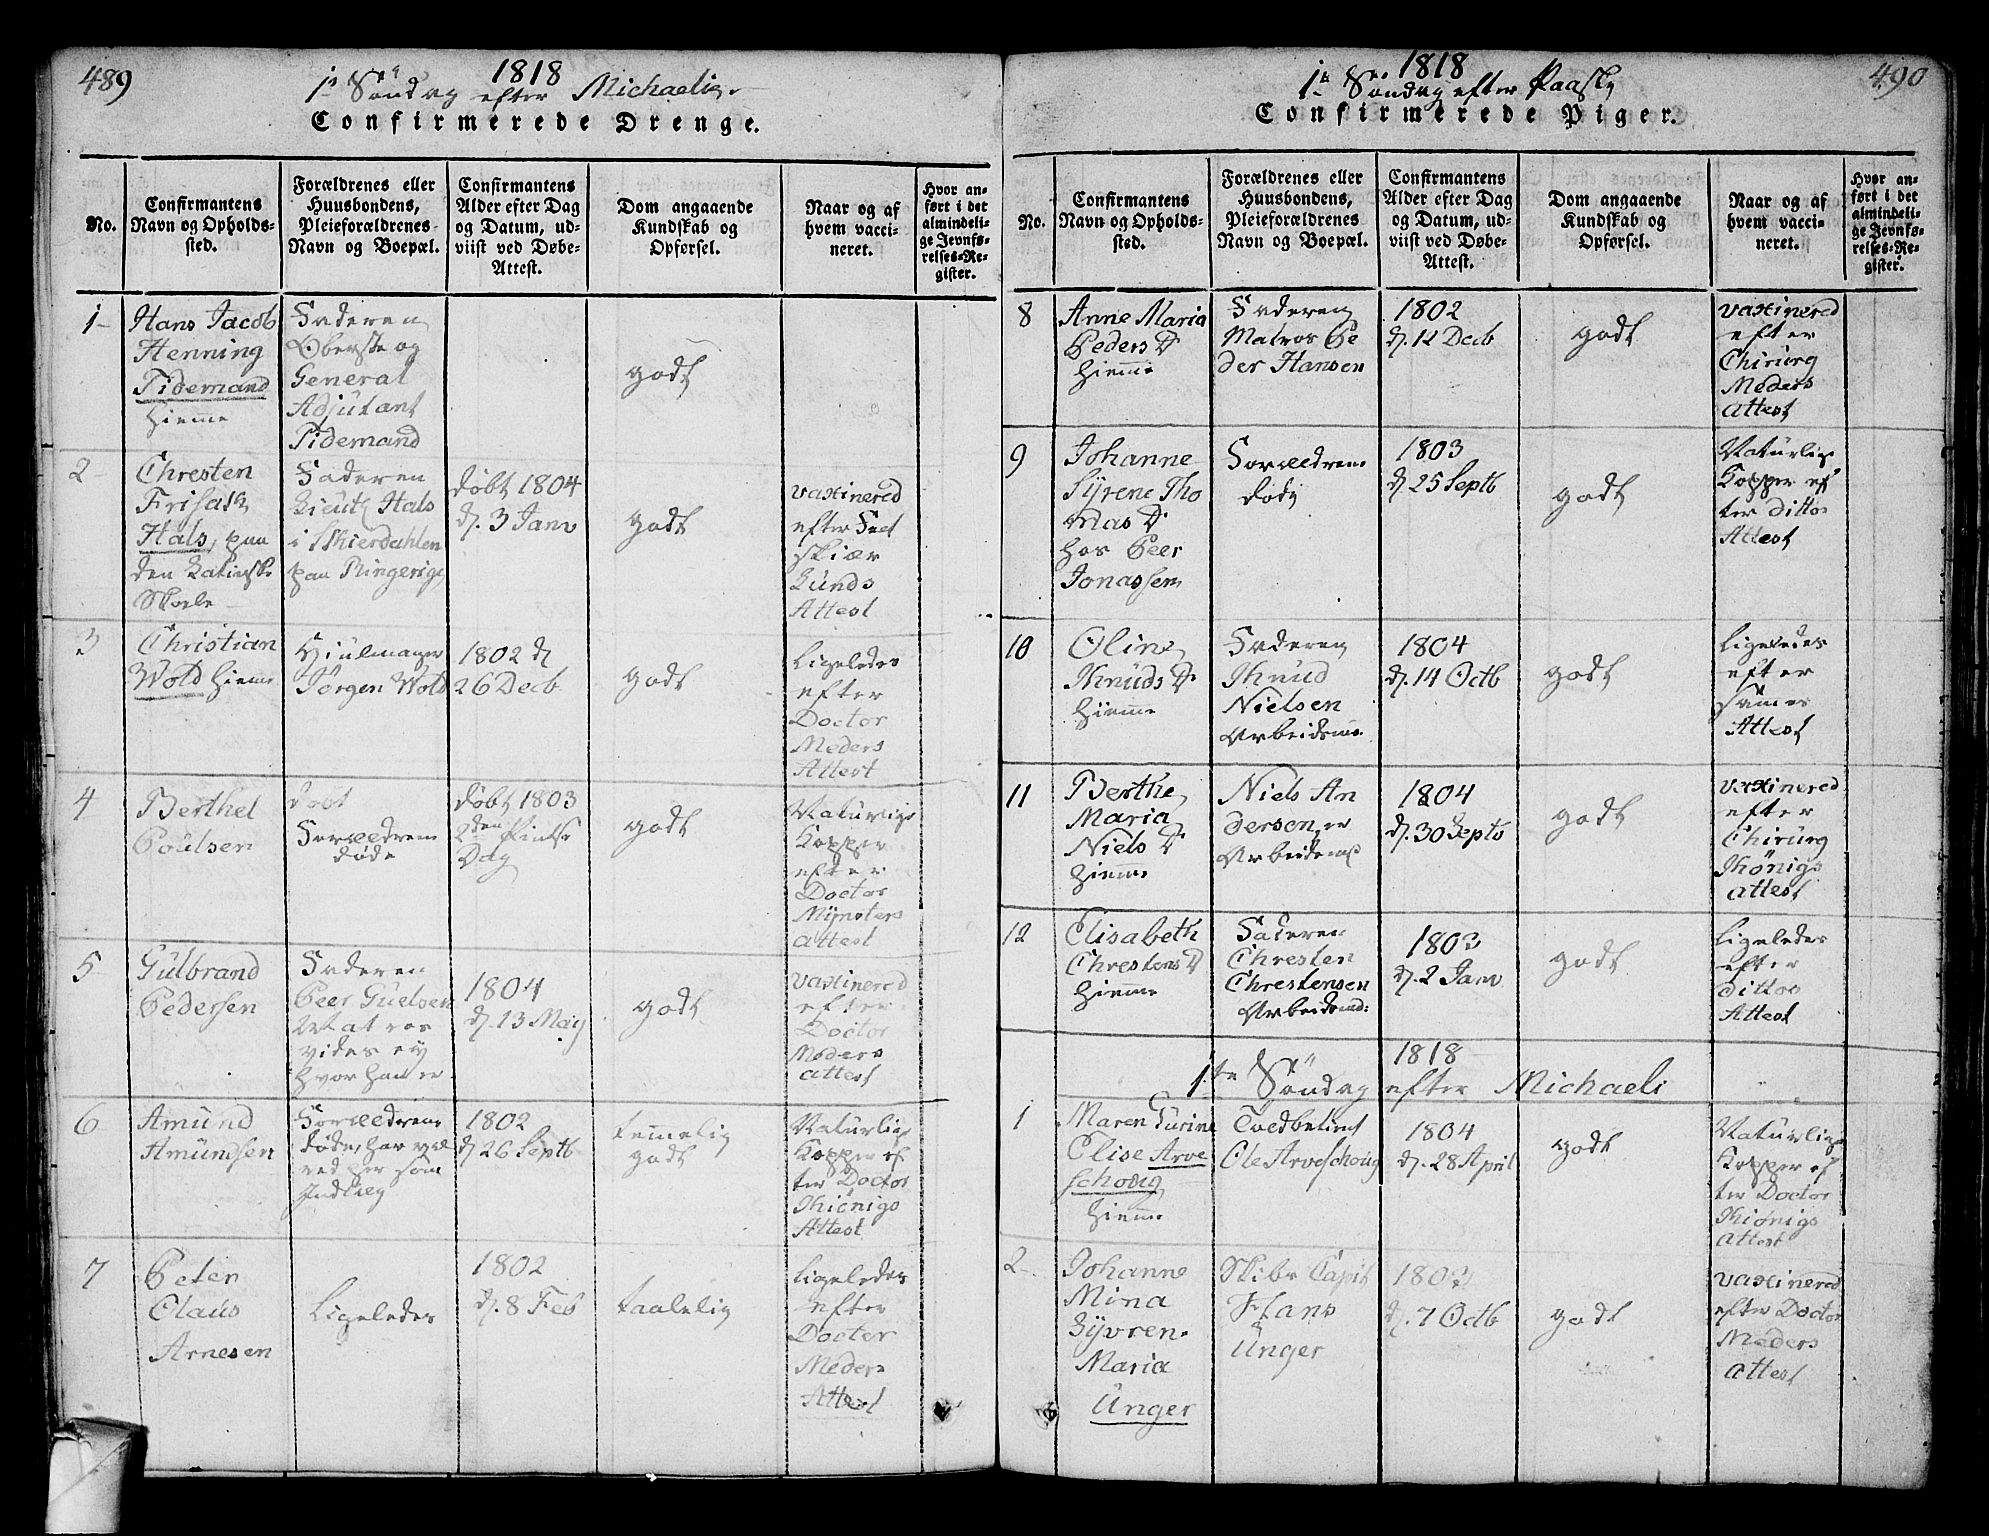 489
1818
1ͤ Söndag efter Michaelis
Confirmerede Drenge.
No.
Confirmantens
Navn og Opholds-
sted.
Forældrenes eller
Huusbondens,
Pleieforældrenes
Navn og Boepæl.
Confirmantens
Alder efter Dag
og Datum, ud-
viist ved Døbe-
Attest.
Dom angaaende
Kundskab og
Opførsel.
Naar og af
hvem vacci-
neret.
Hvor an-
ført i det
almindeli-
ge Jevnfø-
relses-Re-
gister.
1
Hans Jacob
Henning
Tidemand
hiemme
Faderen
Oberste og
General
Adjutant
Tidemand
godt
2
Chresten
Frisak
Hals, paa
den Latinske
Skole
Faderen
Lieut Hals
i Skierdahlen
paa Ringerige
døbt 1804
d. 3 Janv
godt
vaxinered
efter Felt
skiær
Lunds
Attest
3
Christian
Wold hieme
Hiulmager
Jørgen Wold
1802 d
26 Decb
godt
Ligeledes
efter
Doctor
Meders
Attest
4
Berthel
Poulsen
Forældrene
døde
døbt 1803
2den Pintse
Dag
godt
Naturlige
Kopper
efter
Doctor
Mynsters
attest
5
Gulbrand
Pedersen
Faderen
Peer Guelsen
Matros
vides ey
hvor han er
1804
d. 13 May
godt
vaxinered
efter
Doctor
Meders
attest
6
Amund
Amundsen
Forældrene
døde, har væ
red her som
Indlieg
1802
d 26 Septb
temmelig
godt
Naturlig
Kopper ef
ter Doctor
Kiönigs
Attest
7
Peter
Claus
Arnesen
Ligeledes
1802
d. 8 Feb
taalelig
Ligeledes
efter
Docter
Meders
Attest
490
1818
1ͤ Søndag efter Paaske
Confirmerede Piger.
No.
Confirmantens
Navn og Opholds-
sted.
Forældrenes eller
Huusbondens,
Pleieforældrenes
Navn og Boepæl.
Confirmantens
Alder efter Dag
og Datum, ud-
viist ved Døbe-
Attest.
Dom angaaende
Kundskab og
Opførsel.
Naar og af
hvem vacci-
neret.
Hvor an-
ført i det
almindeli-
ge Jevnfø-
relses-Re-
gister.
8
Anne Maria
Peders D
hieme
Faderen
Matros Pe
der Hansen
1802
d. 12 Decb
godt
vaxinered
efter
Chirurg
Meders
attest
9
Johanne
Syrene Tho
mas D
hos Peer
Jonassen
Forældrene
døde
1803
d 25 Septb
godt
Naturlige
Kopper ef
ter ditto
Attest
10
Oline
Knuds D
hieme
Faderen
Knud
Nielsen
Arbeidsm.
1804
d. 14 Octb
godt
Ligeledes
efter
samme
Attest
11
Berthe
Maria
Niels D
hieme
Niels An
dersen er
Arbeidsm
1804
d. 30 Septb
godt
vaxinered
efter
Chirurg
Kønigs
attest
12
Elisabeth
Chrestens D
hieme
Faderen
Chresten
Chrestensen
Arbeidsmd:
1803
d. 2 Janv
godt
Ligeledes
efter
ditto
Attest
1818
1te Söndag efter Michaeli
1
Maren Gurine
Elise Arve
schoug
hieme
Toldbetient
Ole Arveschoug
1804
d. 28 April
godt
Naturlige
Kopper ef
ter Doctor
Kiönigs
attest
2
Johanne
Mina
Syvren
Maria
Unger
Skibs Capit
Hans
Unger
1803
d. 7 Octb
godt
vaxinered
efter Doctor
Meders
attest